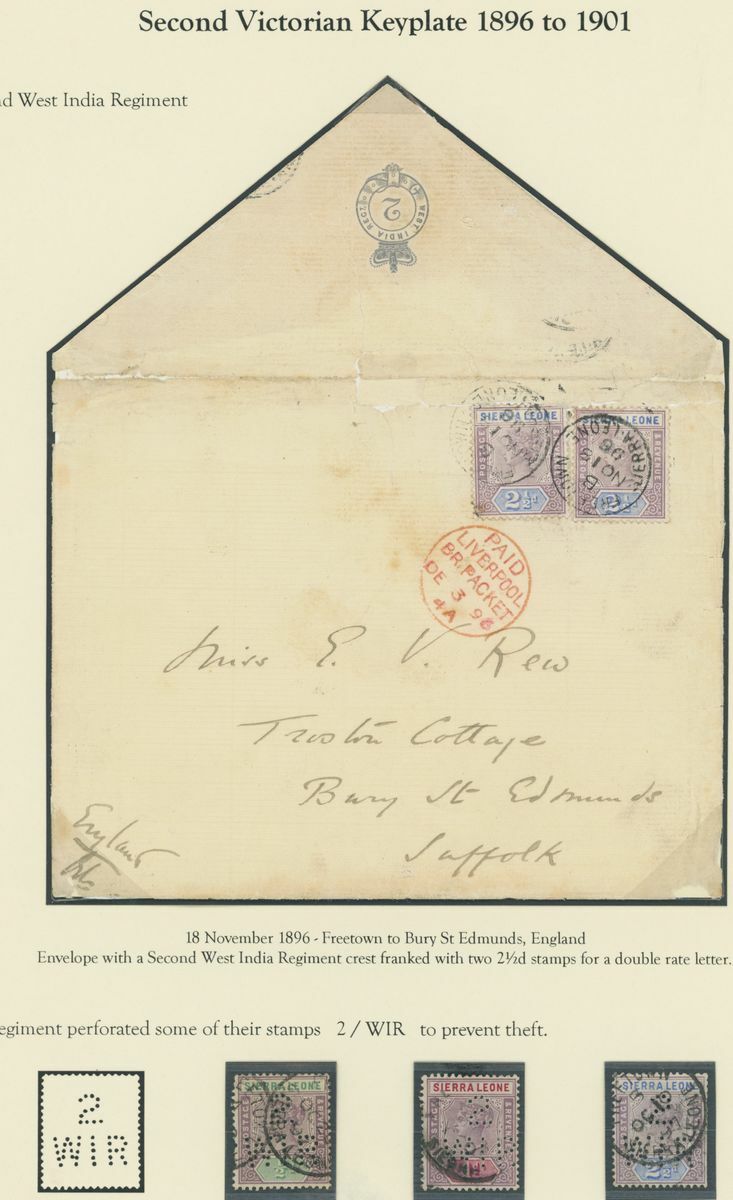 Second Victorian Keyplate 1896 to 1901
nd West India Regiment
2
WEST INDIA REGT
SIERRA LEONE
POSTAGE
2½d
SIERRA LEONE
REVENUE
2½d
SIERRA LEONE
B
NO 18
96
PAID
LIVERPOOL
BR. PACKET
DE 3 96
4A
Miss E. V. Rew
Troston Cottage
Bury St Edmunds
Suffolk
England
18 November 1896 - Freetown to Bury St Edmunds, England
Envelope with a Second West India Regiment crest franked with two 2½d stamps for a double rate letter.
egiment perforated some of their stamps 2 / WIR to prevent theft.
2
WIR
SIERRA LEONE
SIERRA LEONE
SIERRA LEONE